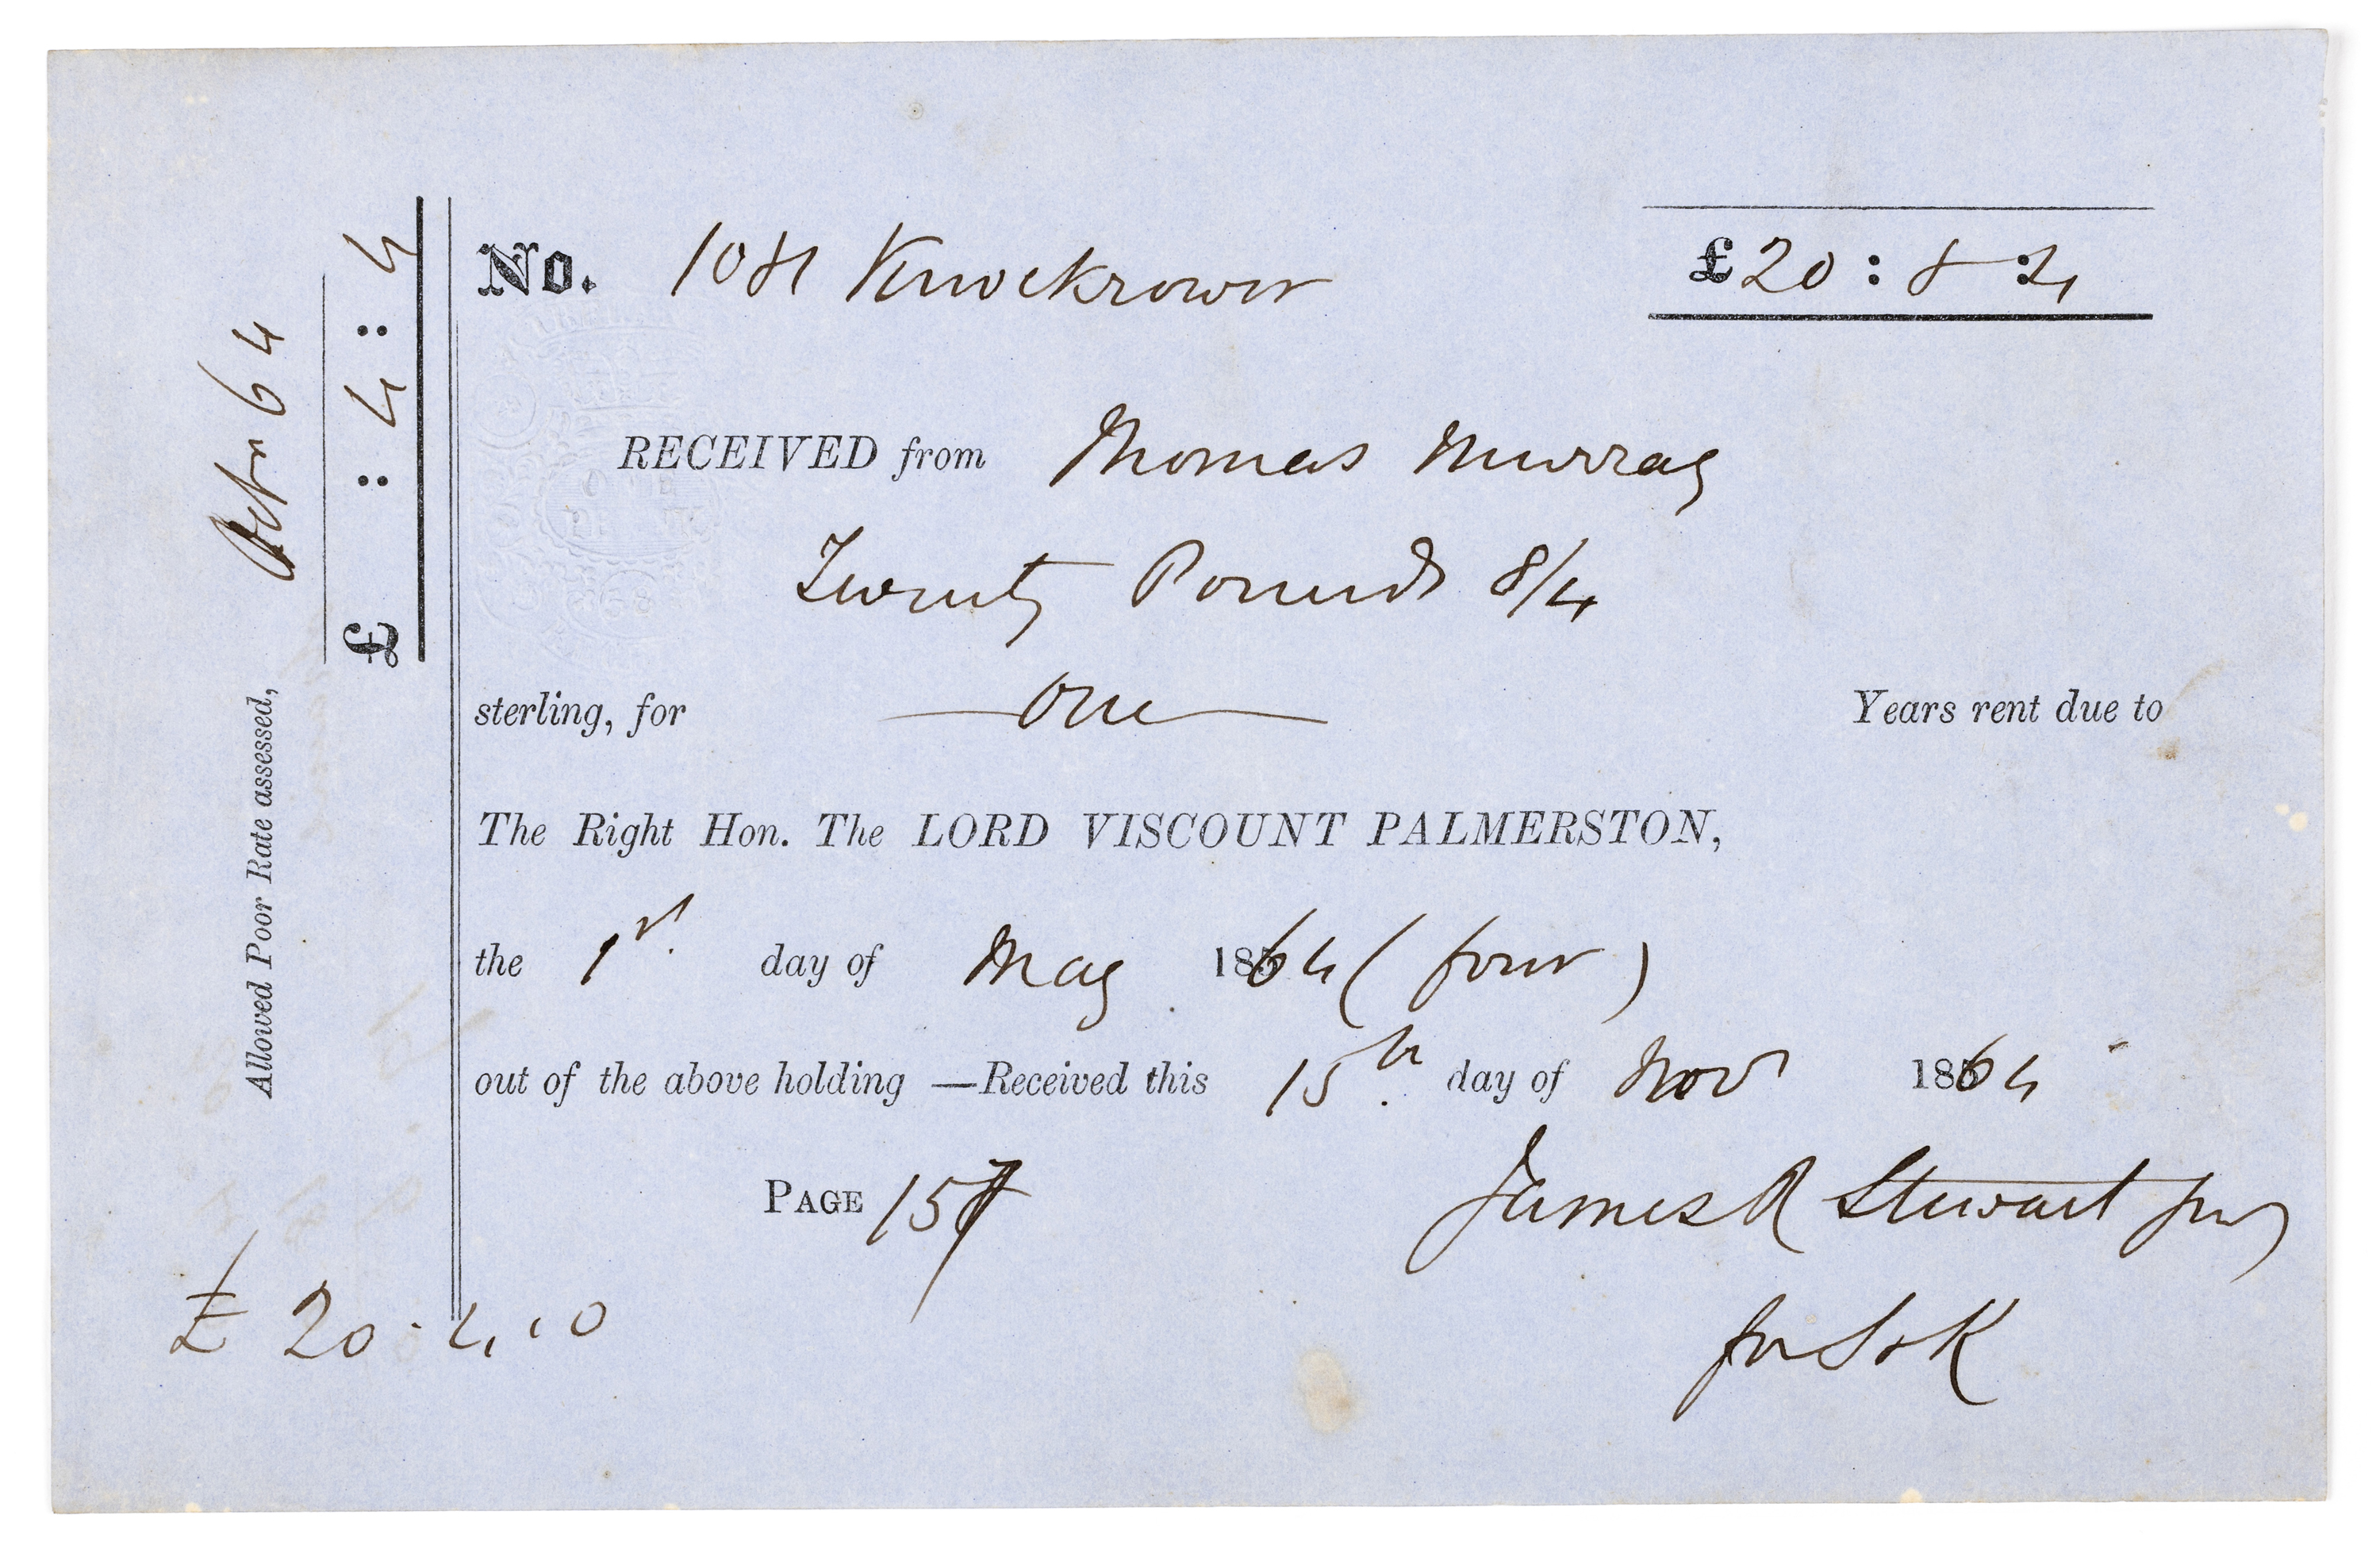 Allowed Poor Rate assessed, Octr 64
£ : 4 : 4
No. Knockrower £20 : 8 : 4
RECEIVED from Thomas Murray
Twenty Pounds 8/4
sterling, for One Years rent due to
The Right Hon. The LORD VISCOUNT PALMERSTON,
the 1st. day of May 1864 (four)
out of the above holding —Received this 15th. day of Novr 1864
PAGE 157 James R Stewart Junr
for S & K
£ 20. 4. 0
ONE